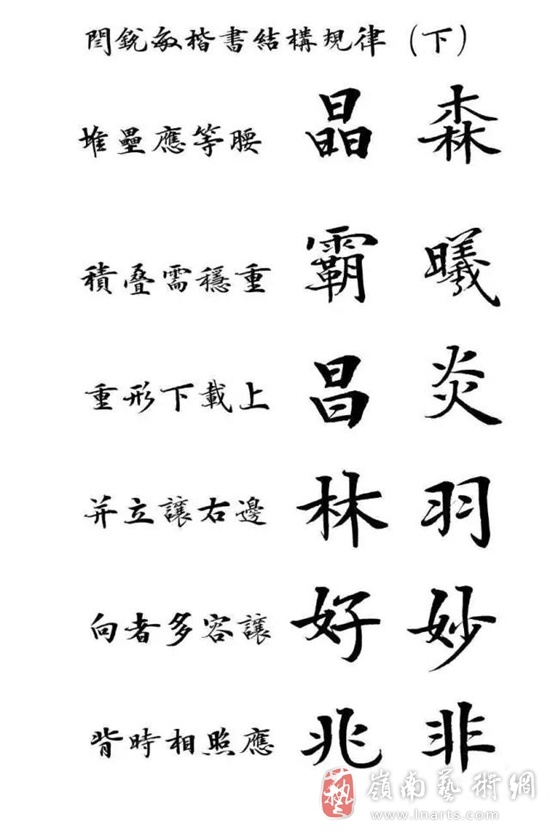 閆銳敏楷書結構規律（下）
堆壘應等腰 晶 森
積叠需穩重 霸 曦
重形下載上 昌 炎
并立讓右邊 林 羽
向者多容讓 好 妙
背時相照應 兆 非
藝 嶺南藝術網
www.lnarts.com